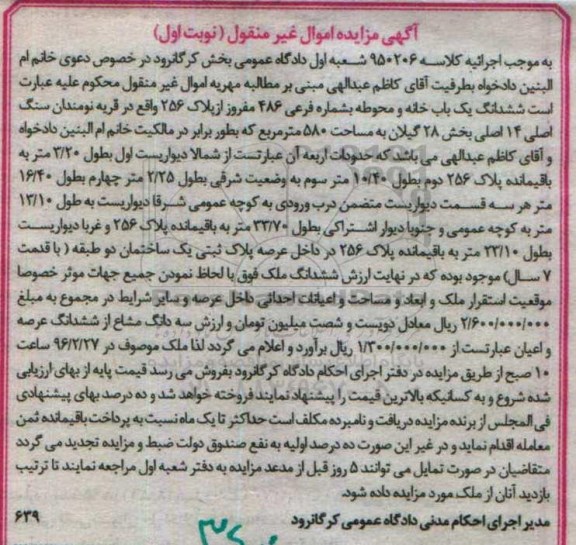 آگهی مزایده اموال غیر منقول (نوبت اول)
به موجب اجرائیه کلاسه ۹۵۰۲۰۶ شعبه اول دادگاه عمومی بخش کرگانرود در خصوص دعوی خانم ام
البنین دادخواه بطرفیت آقای کاظم عبدالهی مبنی بر مطالبه مهریه اموال غیر منقول محکوم علیه عبارت
است ششدانگ یک باب خانه و محوطه بشماره فرعی ۴۸۶ مفروز ازپلاک ۲۵۶ واقع در قریه نومندان سنگ
اصلی ۱۴ اصلی بخش ۲۸ گیلان به مساحت ۵۸۰ مترمربع که بطور برابر در مالکیت خانم ام البنین دادخواه
و آقای کاظم عبدالهی می باشد که حدودات اربعه آن عبارتست از شمالا دیواریست اول بطول ۳/۲۰ متر به
باقیمانده پلاک ۲۵۶ دوم بطول ۱۰/۴۰ متر سوم به وضعیت شرقی بطول ۲/۲۵ متر چهارم بطول ۱۶/۴۰
متر هر سه قسمت دیواریست متضمن درب ورودی به کوچه عمومی شرقا دیواریست به طول ۱۳/۱۰
متر به کوچه عمومی و جنوبا دیوار اشتراکی بطول ۳۳/۷۰ متر به باقیمانده پلاک ۲۵۶ و غربا دیواریست
بطول ۲۳/۱۰ متر به باقیمانده پلاک ۲۵۶ در داخل عرصه پلاک ثبتی یک ساختمان دو طبقه ( با قدمت
۷ سال) موجود بوده که در نهایت ارزش ششدانگ ملک فوق با لحاظ نمودن جمیع جهات موثر خصوصا
موقعیت استقرار ملک و ابعاد و مساحت و اعیانات احداثی داخل عرصه و سایر شرایط در مجموع به مبلغ
۲/۶۰۰/۰۰۰/۰۰۰ ریال معادل دویست و شصت میلیون تومان و ارزش سه دانگ مشاع از ششدانگ عرصه
و اعیان عبارتست از ۱/۳۰۰/۰۰۰/۰۰۰ ریال برآورد و اعلام می گردد لذا ملک موصوف در ۹۶/۲/۲۷ ساعت
۱۰ صبح از طریق مزایده در دفتر اجرای احکام دادگاه کرگانرود بفروش می رسد قیمت پایه از بهای ارزیابی
شده شروع و به کسانیکه بالاترین قیمت را پیشنهاد نمایند فروخته خواهد شد و ده درصد بهای پیشنهادی
فی المجلس از برنده مزایده دریافت و نامبرده مکلف است حداکثر تا یک ماه نسبت به پرداخت باقیمانده ثمن
معامله اقدام نماید و در غیر این صورت ده درصد اولیه به نفع صندوق دولت ضبط و مزایده تجدید می گردد
متقاضیان در صورت تمایل می توانند ۵ روز قبل از موعد مزایده به دفتر شعبه اول مراجعه نمایند تا ترتیب
بازدید آنان از ملک مورد مزایده داده شود.
مدیر اجرای احکام مدنی دادگاه عمومی کرگانرود ۶۳۹